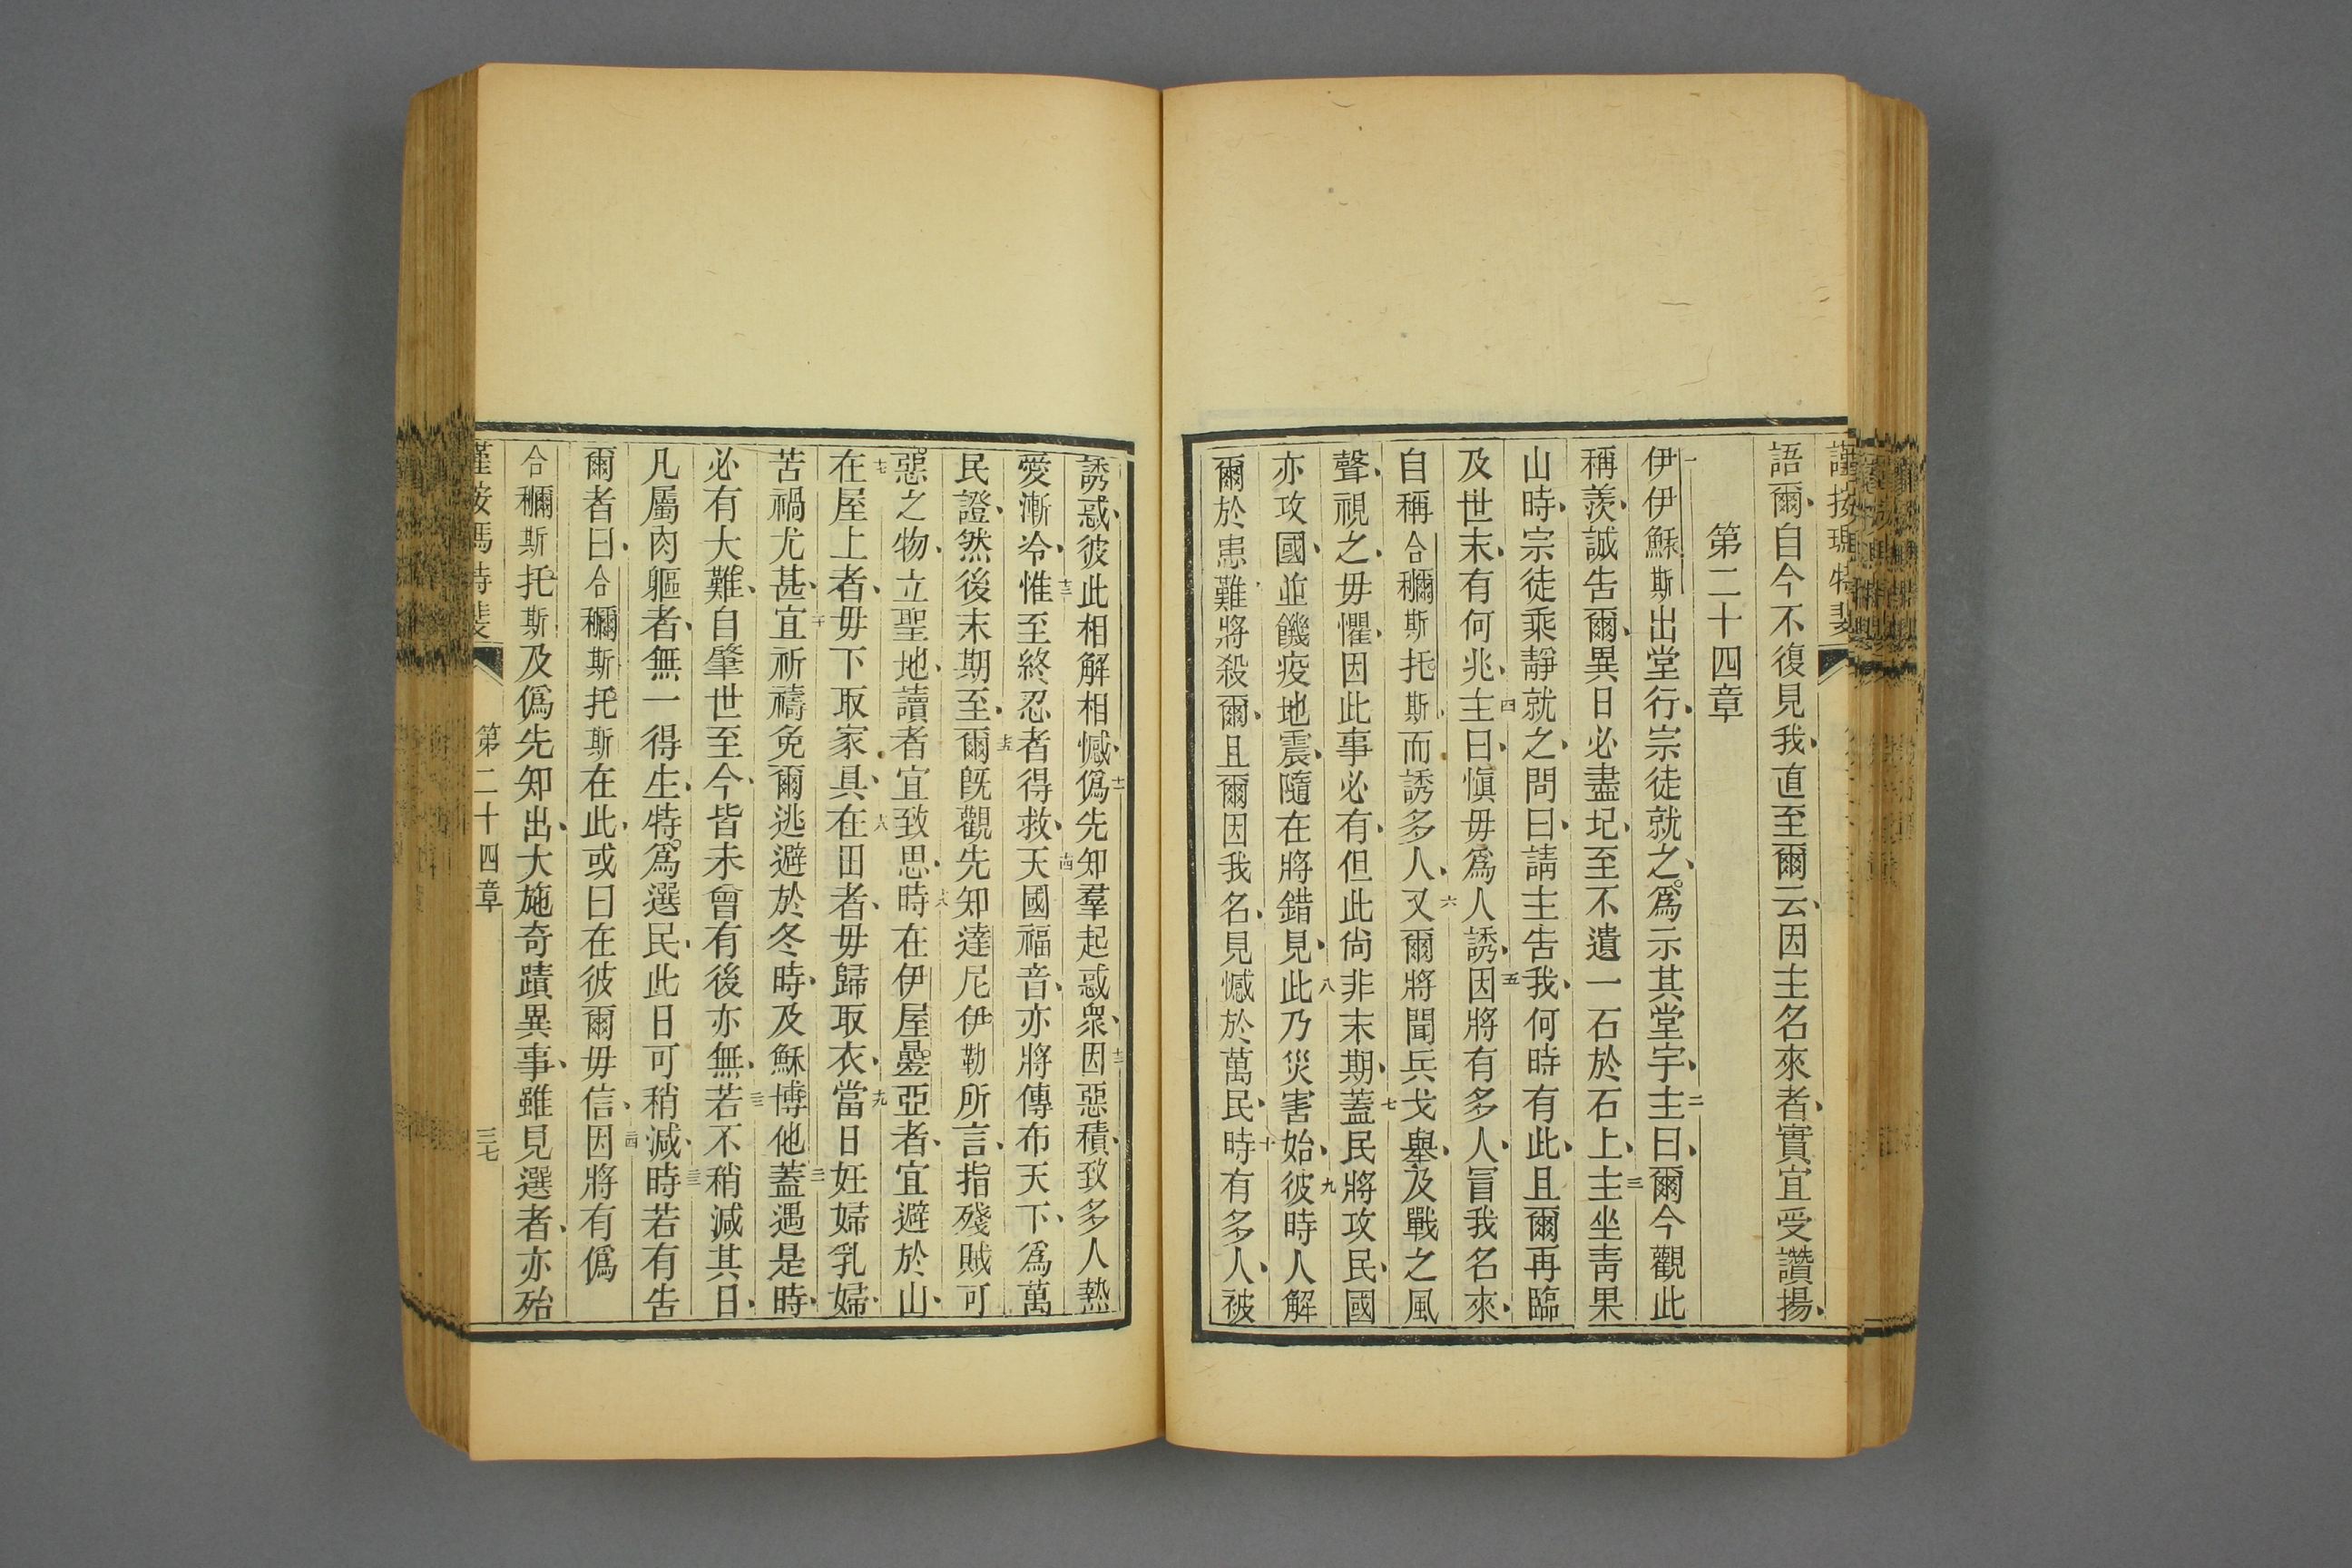 謹按瑪特斐
語爾自今不復見我直至爾云因主名來者實宜受讚揚
第二十四章
一伊伊穌斯出堂行宗徒就之爲示其堂宇二主曰爾今觀此
稱羨誠告爾異日必盡圮至不遺一石於石上三主坐靑果
山時宗徒乘靜就之問曰請主告我何時有此且爾再臨
及世末有何兆四主曰愼毋爲人誘五因將有多人冒我名來
自稱合穪斯托斯而誘多人六又爾將聞兵戈舉及戰之風
聲視之毋懼因此事必有但此尙非末期七蓋民將攻民國
亦攻國並饑疫地震隨在將錯見八此乃災害始九彼時人解
爾於患難將殺爾且爾因我名見憾於萬民十時有多人被
誘惑彼此相解相憾十一僞先知羣起惑衆十二因惡積致多人熱
愛漸冷十三惟至終忍者得救十四天國福音亦將傳布天下爲萬
民證然後末期至十五爾旣觀先知達尼伊勒所言指殘賊可
惡之物立聖地讀者宜致思十六時在伊屋曡亞者宜避於山
十七在屋上者毋下取家具十八在田者毋歸取衣十九當日妊婦乳婦
苦禍尤甚二十宜祈禱免爾逃避於冬時及穌博他二一蓋遇是時
必有大難自肇世至今皆未曾有後亦無二二若不稍減其日
凡屬肉軀者無一得生特爲選民此日可稍減二三時若有告
爾者曰合穪斯托斯在此或曰在彼爾毋信二四因將有僞
合穪斯托斯及僞先知出大施奇蹟異事雖見選者亦殆
謹按瑪特斐 第二十四章 三七